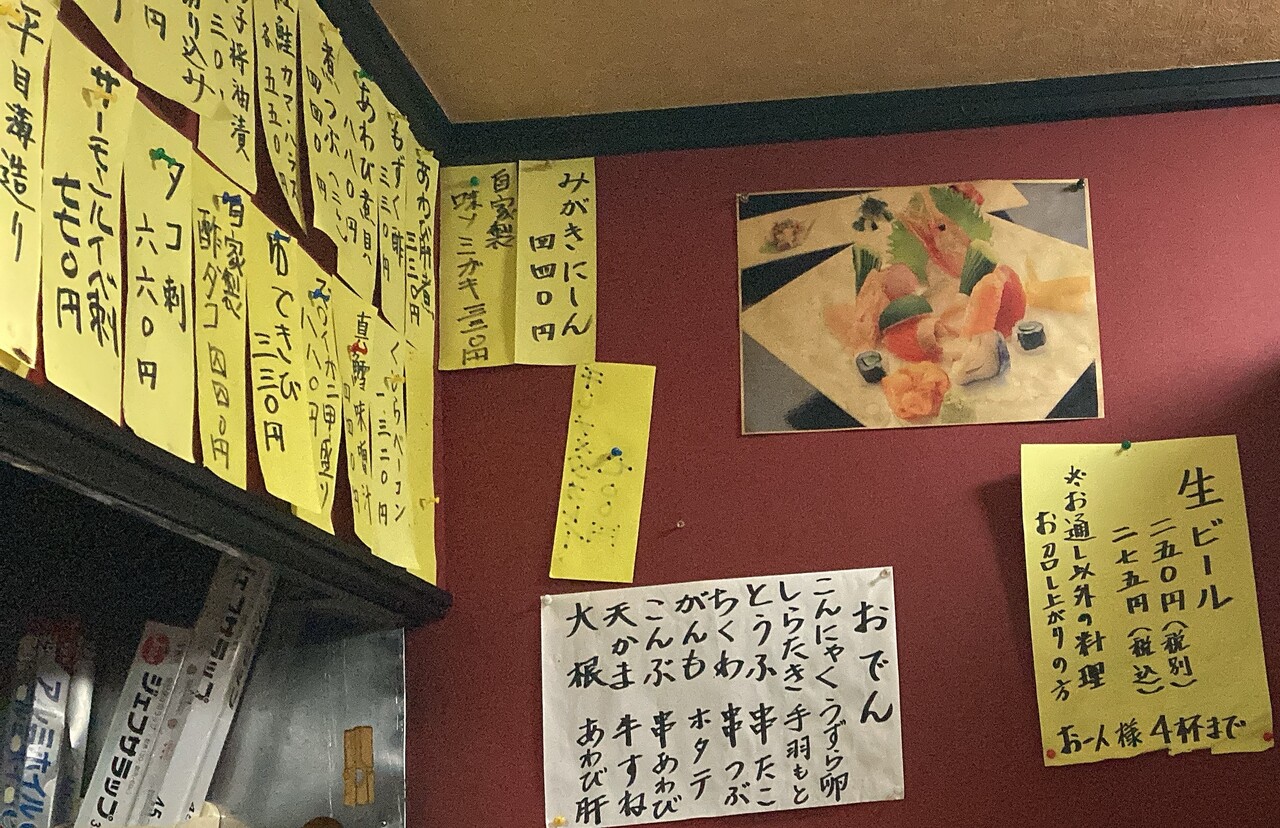 生ビール
二五〇円(税別)
二七五円(税込)
※お通し以外の料理
お召し上がりの方
お一人様4杯まで
おでん
こんにゃく うずら卵
しらたき 手羽もと
とうふ 串たこ
ちくわ 串つぶ
がんも ホタテ
こんぶ 串あわび
天かま 牛すね
大根 あわび肝
みがきにしん
四四〇円
自家製
味
三三〇円
あわび肝煮
三三〇円
もずく酢
三三〇円
あわび煮貝
八八〇円
煮つぶ
四四〇円
鮭カマ・ハラス
各五五〇
子醤油漬
切り込み
円
くじらベーコン
一三二〇円
真鱈味噌汁
四四〇円
二甲盛り
八八〇円
できび
三三〇円
自家製
酢ダコ 四四〇円
タコ刺
六六〇円
サーモンルイベ刺
七七〇円
平目薄造り
ジェフサラップ
45